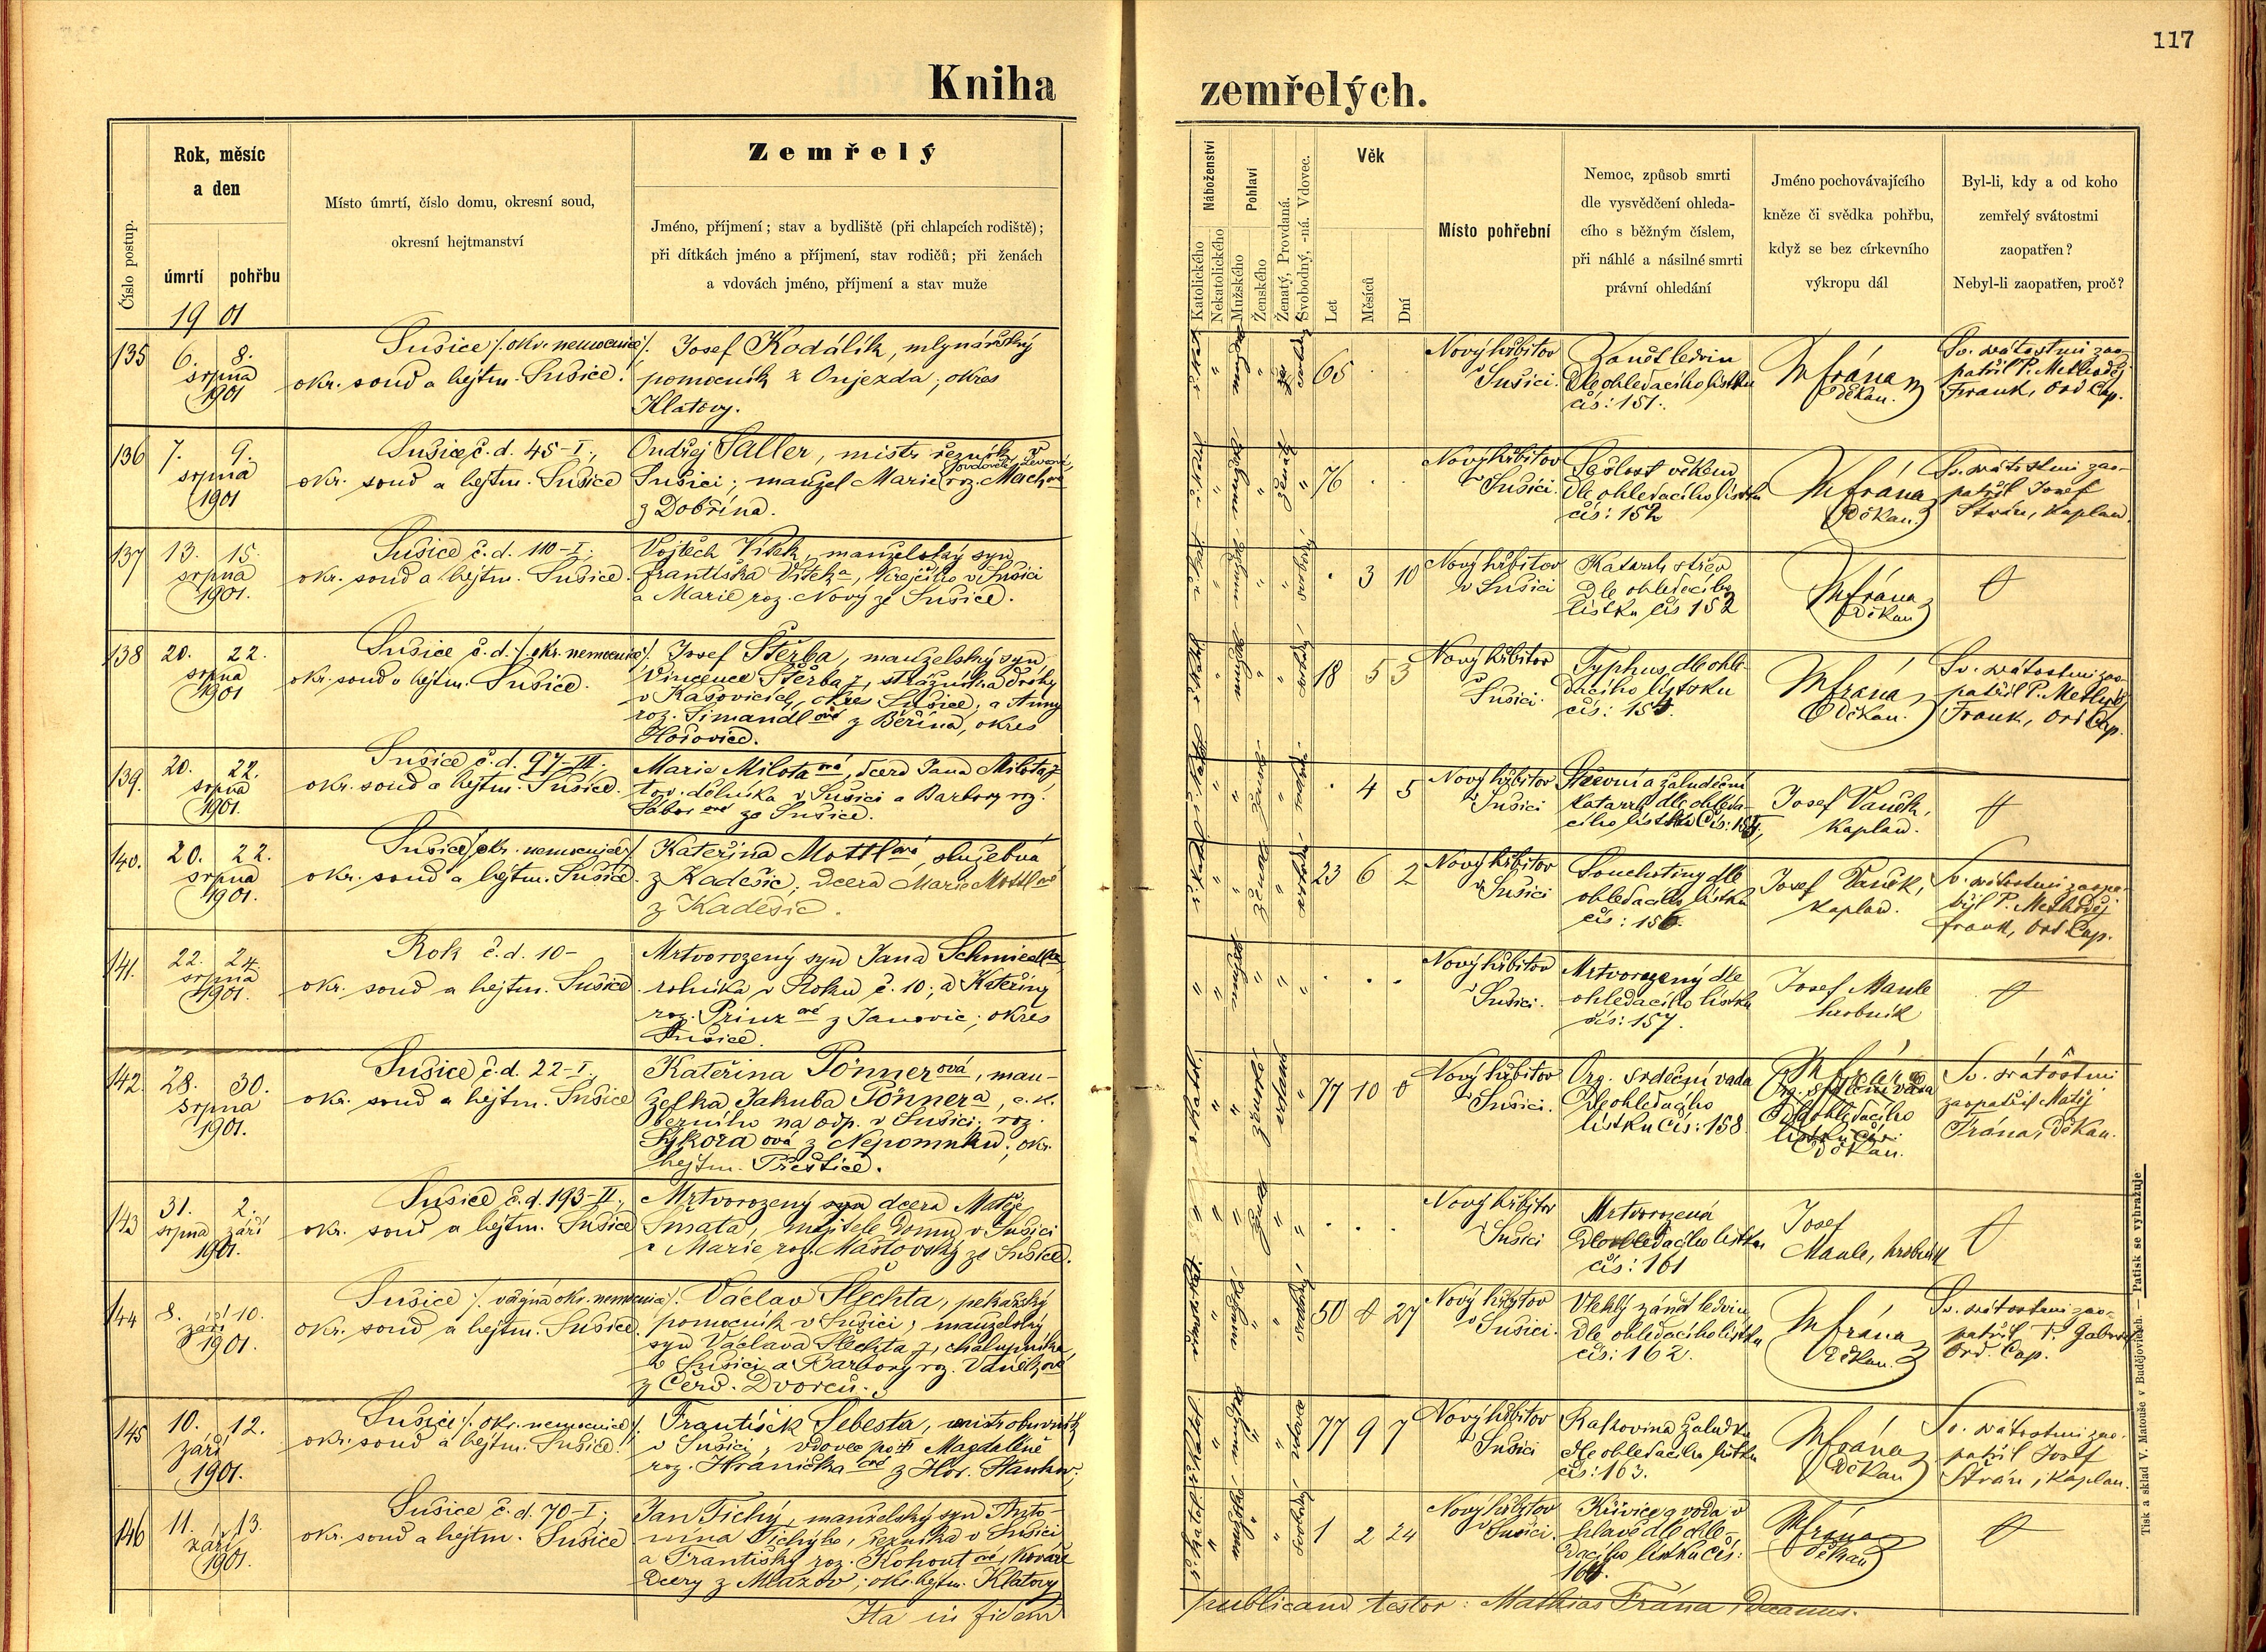 117
Kniha zemřelých.
Číslo postup.
Rok, měsíc
a den
úmrtí
pohřbu
1901
Místo úmrtí, číslo domu, okresní soud,
okresní hejtmanství
Zemřelý
Jméno, příjmení; stav a bydliště (při chlapcích rodiště);
při dítkách jméno a příjmení, stav rodičů; při ženách
a vdovách jméno, příjmení a stav muže
Náboženství
Katolického
Nekatolického
Pohlaví
Mužského
Ženského
Ženatý, Provdaná.
Svobodný, -ná. Vdovec.
Věk
Let
Měsíců
Dní
Místo pohřební
Nemoc, způsob smrti
dle vysvědčení ohleda-
cího s běžným číslem,
při náhlé a násilné smrti
právní ohledání
Jméno pochovávajícího
kněze či svědka pohřbu,
když se bez církevního
výkropu dál
Byl-li, kdy a od koho
zemřelý svátostmi
zaopatřen?
Nebyl-li zaopatřen, proč?
135
6. 8.
srpna
1901
Sušice /: okr. nemocnice :/
okr. soud a hejtm. Sušice.
Josef Kodálík, mlynářský
pomocník z Onjezda, okres
Klatovy.
65
Nový hřbitov
v Sušici.
Zánět ledvin
dle ohledacího lístku
čís: 151.
M Frána
děkan.
Sv. svátostmi zao-
patřil P. Methoděj
Frank, Ord. Cap.
136
7. 9.
srpna
1901
Sušice č. d. 45-I.,
okr. soud a hejtm. Sušice
Ondřej Saller, mistr řezník v
Sušici; manžel Marie roz. Machové
z Dobřína.
ženatý
76
Nový hřbitov
v Sušici.
Sešlost věkem
dle ohledacího lístku
čís: 152
M Frána
děkan.
Sv. svátostmi zao-
patřil Josef
Strán, kaplan.
137
13. 15.
srpna
1901.
Sušice č. d. 110-I.
okr. soud a hejtm. Sušice.
Vojtěch Vítek, manželský syn
Františka Vítka, krejčího v Sušici
a Marie roz. Nový ze Sušice.
svobodný
3 10
Nový hřbitov
v Sušici
Katarrh střev
dle ohledacího
lístku čís 152
M Frána
děkan
138
20. 22.
srpna
1901
Sušice č. d. /: okr. nemocnice :/
okr. soud a hejtm. Sušice.
Josef Štěrba, manželský syn
Vincence Štěrba, strážníka dráhy
v Kašovicích, okres Sušice, a Anny
roz. Šimandlové z Běřína, okres
Hořovice.
18 5 3
Nový hřbitov
v Sušici.
Typhus, dle ohle-
dacího lístku
M Frána
děkan.
Sv. svátostmi zao-
patřil P. Methoděj
Frank, Ord. Cap.
139.
20. 22.
srpna
1901.
Sušice č. d. 97-III.
okr. soud a hejtm. Sušice.
Marie Milotaová, dcera Jana Miloty,
tov. dělníka v Sušici a Barbory roz.
Sáborové ze Sušice.
4 5
Nový hřbitov
v Sušici
Střevní a žaludeční
katarrh dle ohleda-
cího lístku čís:
Josef Vaněk,
kaplan.
140.
20. 22.
srpna
1901.
Sušice /: okr. nemocnice :/
okr. soud a hejtm. Sušice.
Kateřina Mottlová, služebná
z Kadešic, dcera Marie Mottlové
z Kadešic.
23 6 2
Nový hřbitov
v Sušici
Souchotiny dle
ohledacího lístku
čís: 156.
Josef Vaněk,
kaplan.
Sv. svátostmi zaopa-
byl P. Methoděj
Frank, Ord. Cap.
141.
22. 24.
srpna
1901.
Rok č. d. 10-
okr. soud a hejtm. Sušice.
Mrtvorozený syn Jana Schmiedla
rolníka v Roku č. 10; a Kateřiny
roz. Prinzové z Janovic; okres
Sušice.
Nový hřbitov
v Sušici.
Mrtvorozený dle
ohledacího lístku
čís: 157.
Josef Maule
hrobník
142.
28. 30.
srpna
1901.
Sušice č. d. 22-I.,
okr. soud a hejtm. Sušice
Kateřina Pönnerová, man-
želka Jakuba Pönnera, c. k.
berního na odp. v Sušici, roz.
Sýkoraová z Nepomuku; okr.
hejtm. Přeštice.
77 10 0
Nový hřbitov
v Sušici.
Org. srdeční vada
dle ohledacího
lístku čís: 158
M Frána
Org. srdeční vada
dle ohledacího
lístku čís:
děkan.
Sv. svátostmi
zaopatřil Matěj
Frána, děkan.
143
31. 2.
srpna září
1901.
Sušice č. d. 193-II.,
okr. soud a hejtm. Sušice
Mrtvorozený syn dcera Matěje
Šmata, majitele domu v Sušici
a Marie roz. Maštovský ze Sušice.
Nový hřbitov
v Sušici
Mrtvorozená
dle ohledacího lístku
čís: 161
Josef
Maule, hrobník
144
8. 10.
září
1901.
Sušice /: okr. nemocnice :/
okr. soud a hejtm. Sušice.
Václav Šlechta, pekařský
pomocník v Sušici, manželský
syn Václava Šlechty, chalupníka
v Sušici a Barbory roz. Vaněkové
z Červ. Dvorců.
svobodný
50 0 27
Nový hřbitov
v Sušici.
Vleklý zánět ledvin
dle ohledacího lístku
čís: 162.
M Frána
děkan.
Sv. svátostmi zao-
patřil P. Gabriel
Ord. Cap.
145
10. 12.
září
1901.
Sušice /: okr. nemocnice :/
okr. soud a hejtm. Sušice.
František Šebesta, mistr obuvník
v Sušici, vdovec po † Magdaléně
roz. Hraničkaové z Hor. Stankov.
vdovec
77 9 7
Nový hřbitov
v Sušici
Rakovina žaludku
dle ohledacího lístku
čís: 163.
M Frána
děkan
Sv. svátostmi zao-
patřil Josef
Strán, kaplan.
146
11. 13.
září
1901.
Sušice č. d. 70-I;
okr. soud a hejtm. Sušice
Jan Tichý, manželský syn Anto-
nína Tichýho, řezníka v Sušici
a Františky roz. Kohoutové, kováře
dcery z Mlázov, okr. hejtm. Klatovy
svobodný
1 2 24
Nový hřbitov
v Sušici.
Křivice a voda v
hlavě dle ohle-
dacího lístku čís:
M Frána
děkan
Ita in fidem
publicam testor: Mathias Frána, Decanus.
Tisk a sklad V. Matouše v Budějovicích. — Patisk se vyhražuje